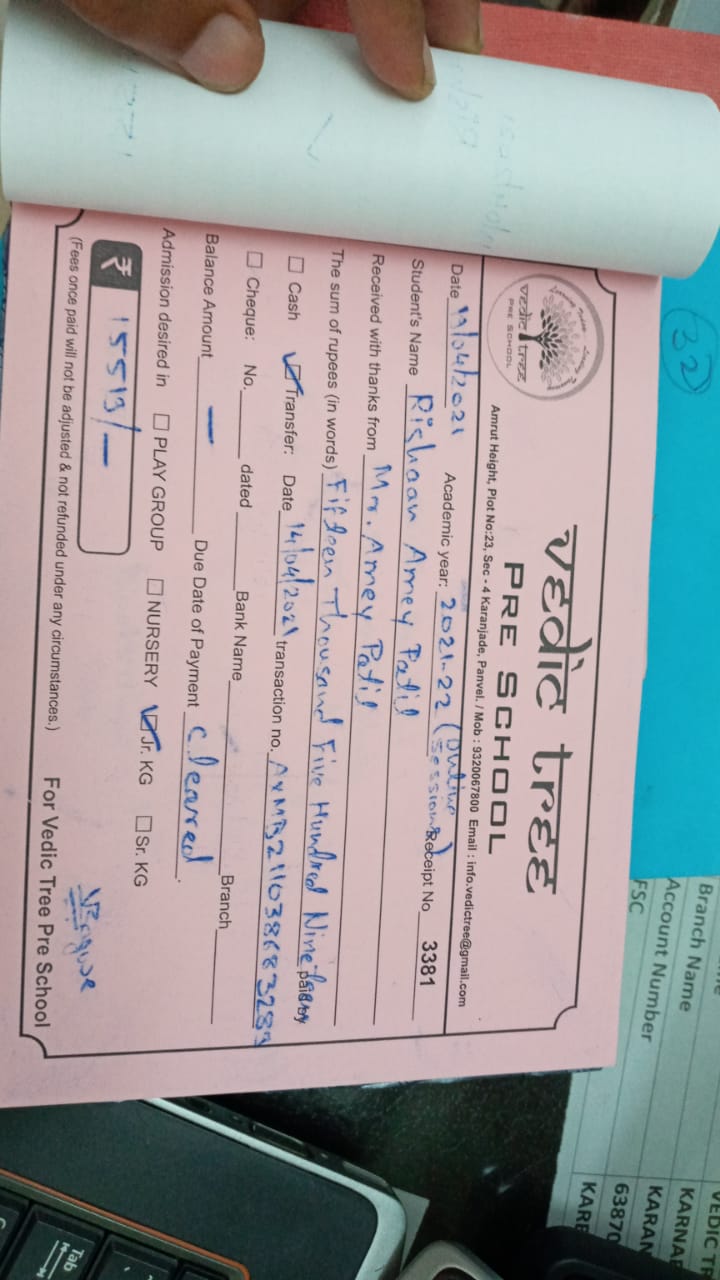 32
vedic tree
PRE SCHOOL
vedic tree
PRE SCHOOL
Amrut Height, Plot No:23, Sec - 4 Karanjade, Panvel. / Mob : 9320067800 Email : info.vedictree@gmail.com
Date 13/04/2021 Academic year: 2021-22 (Online Sessions) Receipt No 3381
Student's Name Rishaan Amey Patil
Received with thanks from Mr. Amey Patil
The sum of rupees (in words) Fifteen Thousand Five Hundred Nineteen paid by
☐ Cash ☑ Transfer: Date 14/04/2021 transaction no. AXMB211038683289
☐ Cheque: No. dated Bank Name Branch
Balance Amount — Due Date of Payment cleared.
Admission desired in ☐ PLAY GROUP ☐ NURSERY ☑ Jr. KG ☐ Sr. KG
₹ 15519/-
(Fees once paid will not be adjusted & not refunded under any circumstances.) For Vedic Tree Pre School
Branch Name
Account Number
FSC
VEDIC TR
KARNA
KARAN
63870
KARB
Tab